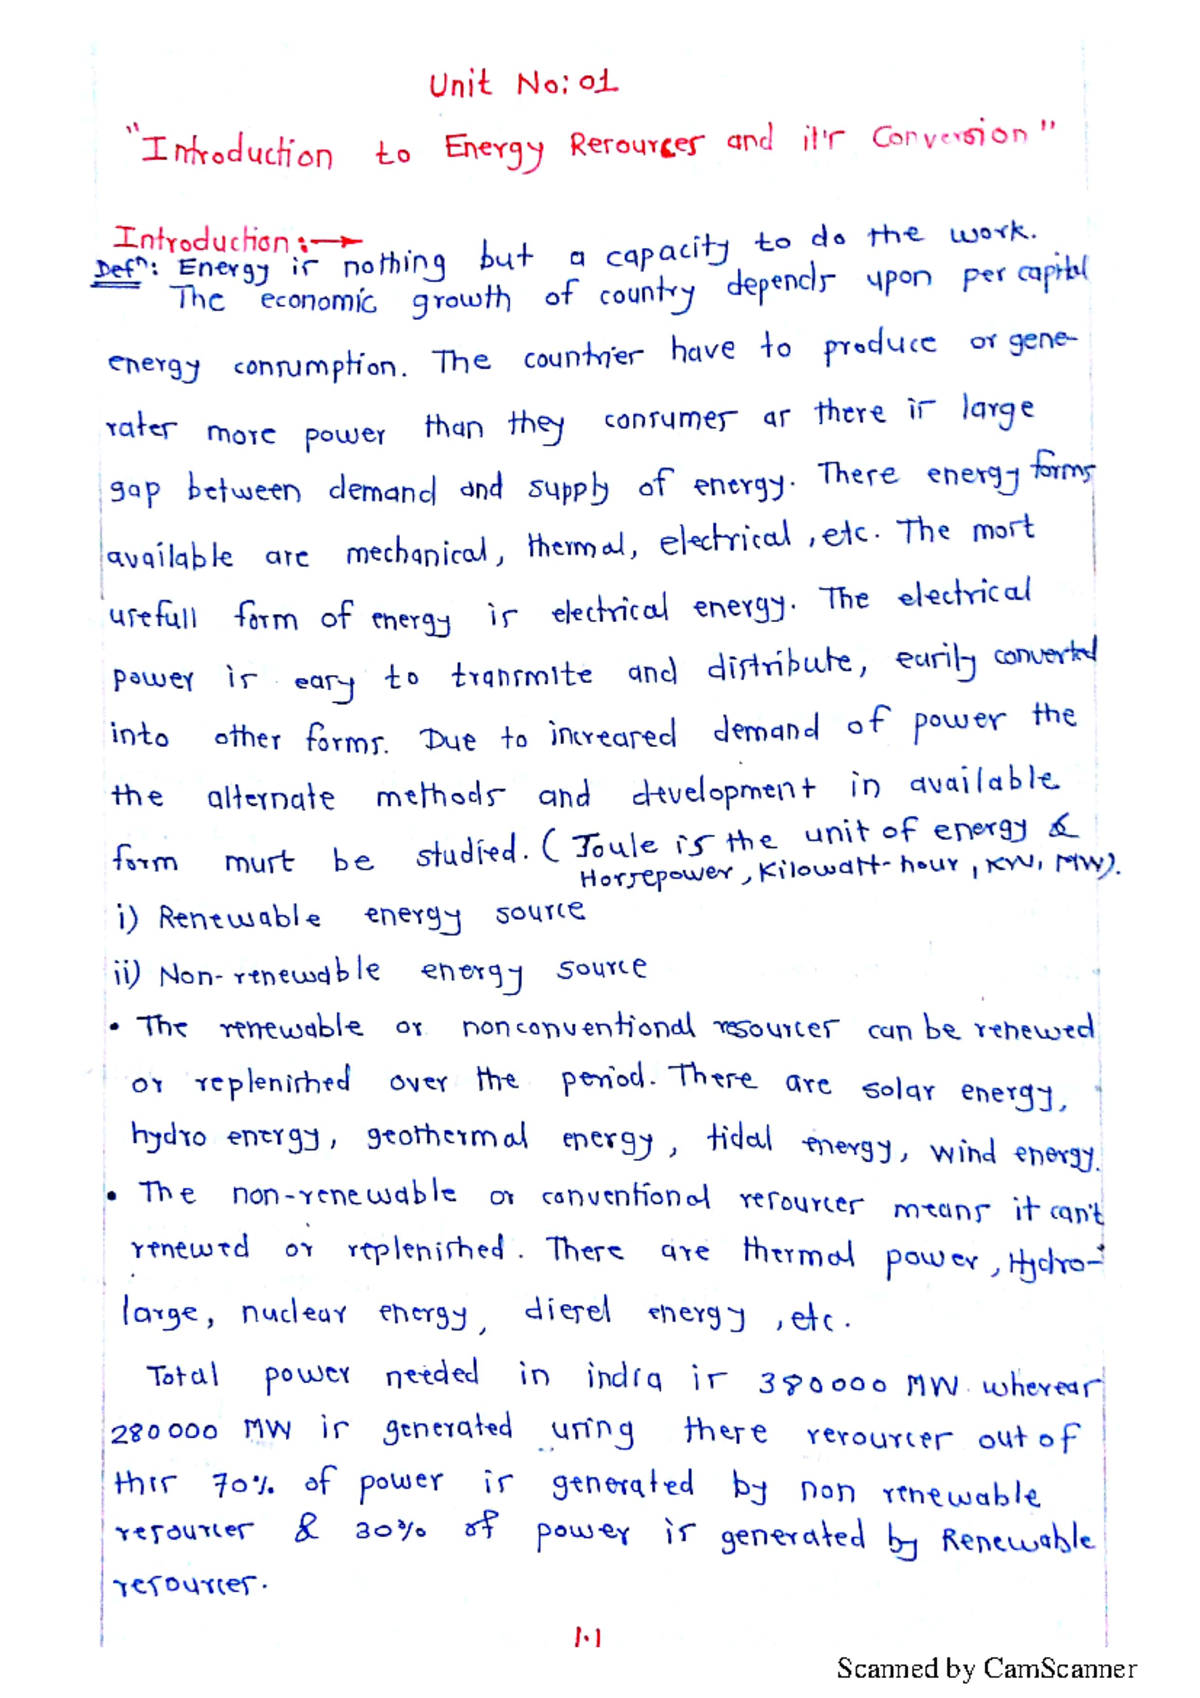 Unit No: 01
"Introduction to Energy Resources and it's Conversion"
Introduction :→
Defn: Energy is nothing but a capacity to do the work.
The economic growth of country depends upon per capital
energy consumption. The countries have to produce or gene-
rates more power than they consumes as there is large
gap between demand and supply of energy. These energy forms
available are mechanical, thermal, electrical, etc. The most
usefull form of energy is electrical energy. The electrical
power is easy to transmite and distribute, easily converted
into other forms. Due to increased demand of power the
the alternate methods and development in available
form must be studied. (Joule is the unit of energy &
Horsepower, Kilowatt-hour, KW, MW).
i) Renewable energy source
ii) Non-renewable energy source
• The renewable or nonconventional resources can be renewed
or replenished over the period. These are solar energy,
hydro energy, geothermal energy, tidal energy, wind energy.
• The non-renewable or conventional resources means it can't
renewed or replenished. These are thermal power, Hydro-
large, nuclear energy, diesel energy, etc.
Total power needed in india is 380000 MW whereas
280000 MW is generated using these resources out of
this 70% of power is generated by non renewable
resources & 30% of power is generated by Renewable
resources.
1.1
Scanned by CamScanner